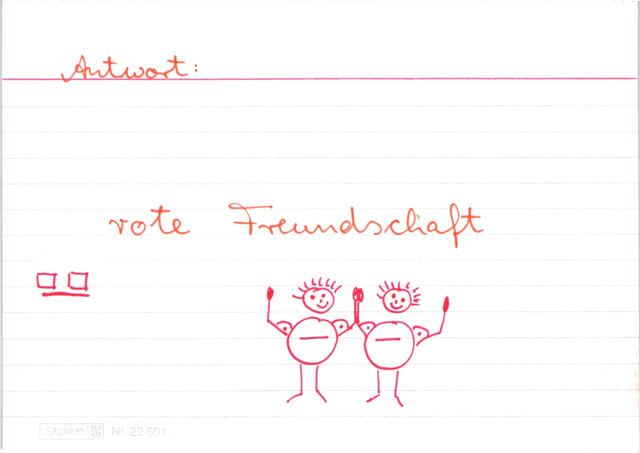 Antwort:
rote Freundschaft
Nr. 22 601